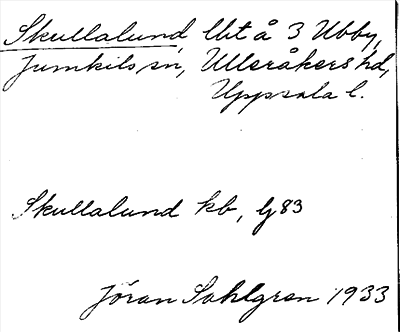 Skullalund lht å 3 Ubby,
Jumkils sn, Ulleråkers hd,
Uppsala l.
Skullalund kb, lj 83
Jöran Sahlgren 1933